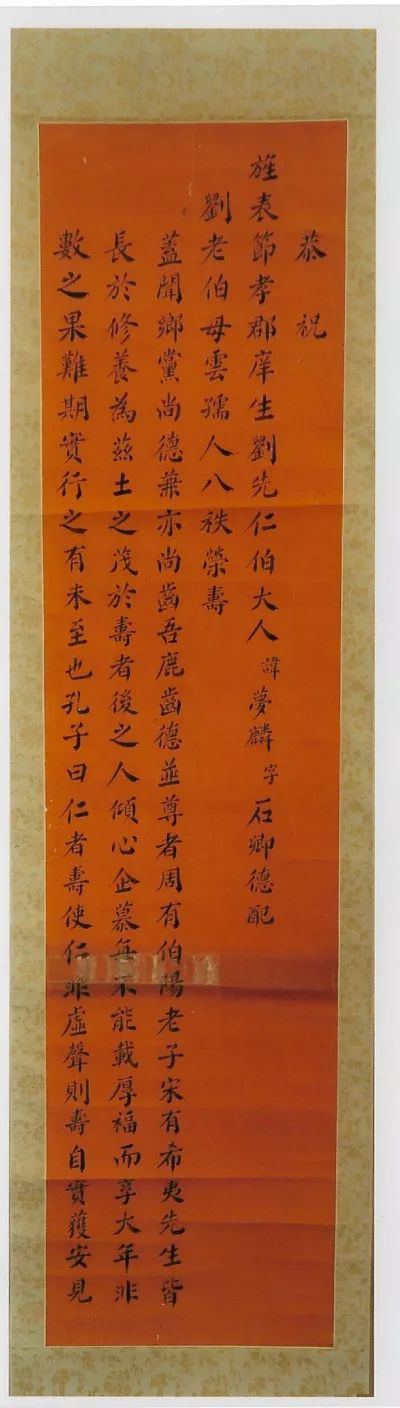 恭祝
旌表節孝郡庠生劉先仁伯大人諱夢麟字石卿德配
劉老伯母雲孺人八秩榮壽
蓋聞鄉黨尚德兼亦尚齒吾鹿齒德並尊者周有伯陽老子宋有希夷先生皆
長於修養為茲土之茂於壽者後之人傾心企慕每不能載厚福而享大年非
數之果難期實行之有未至也孔子曰仁者壽使仁非虛聲則壽自實獲安見